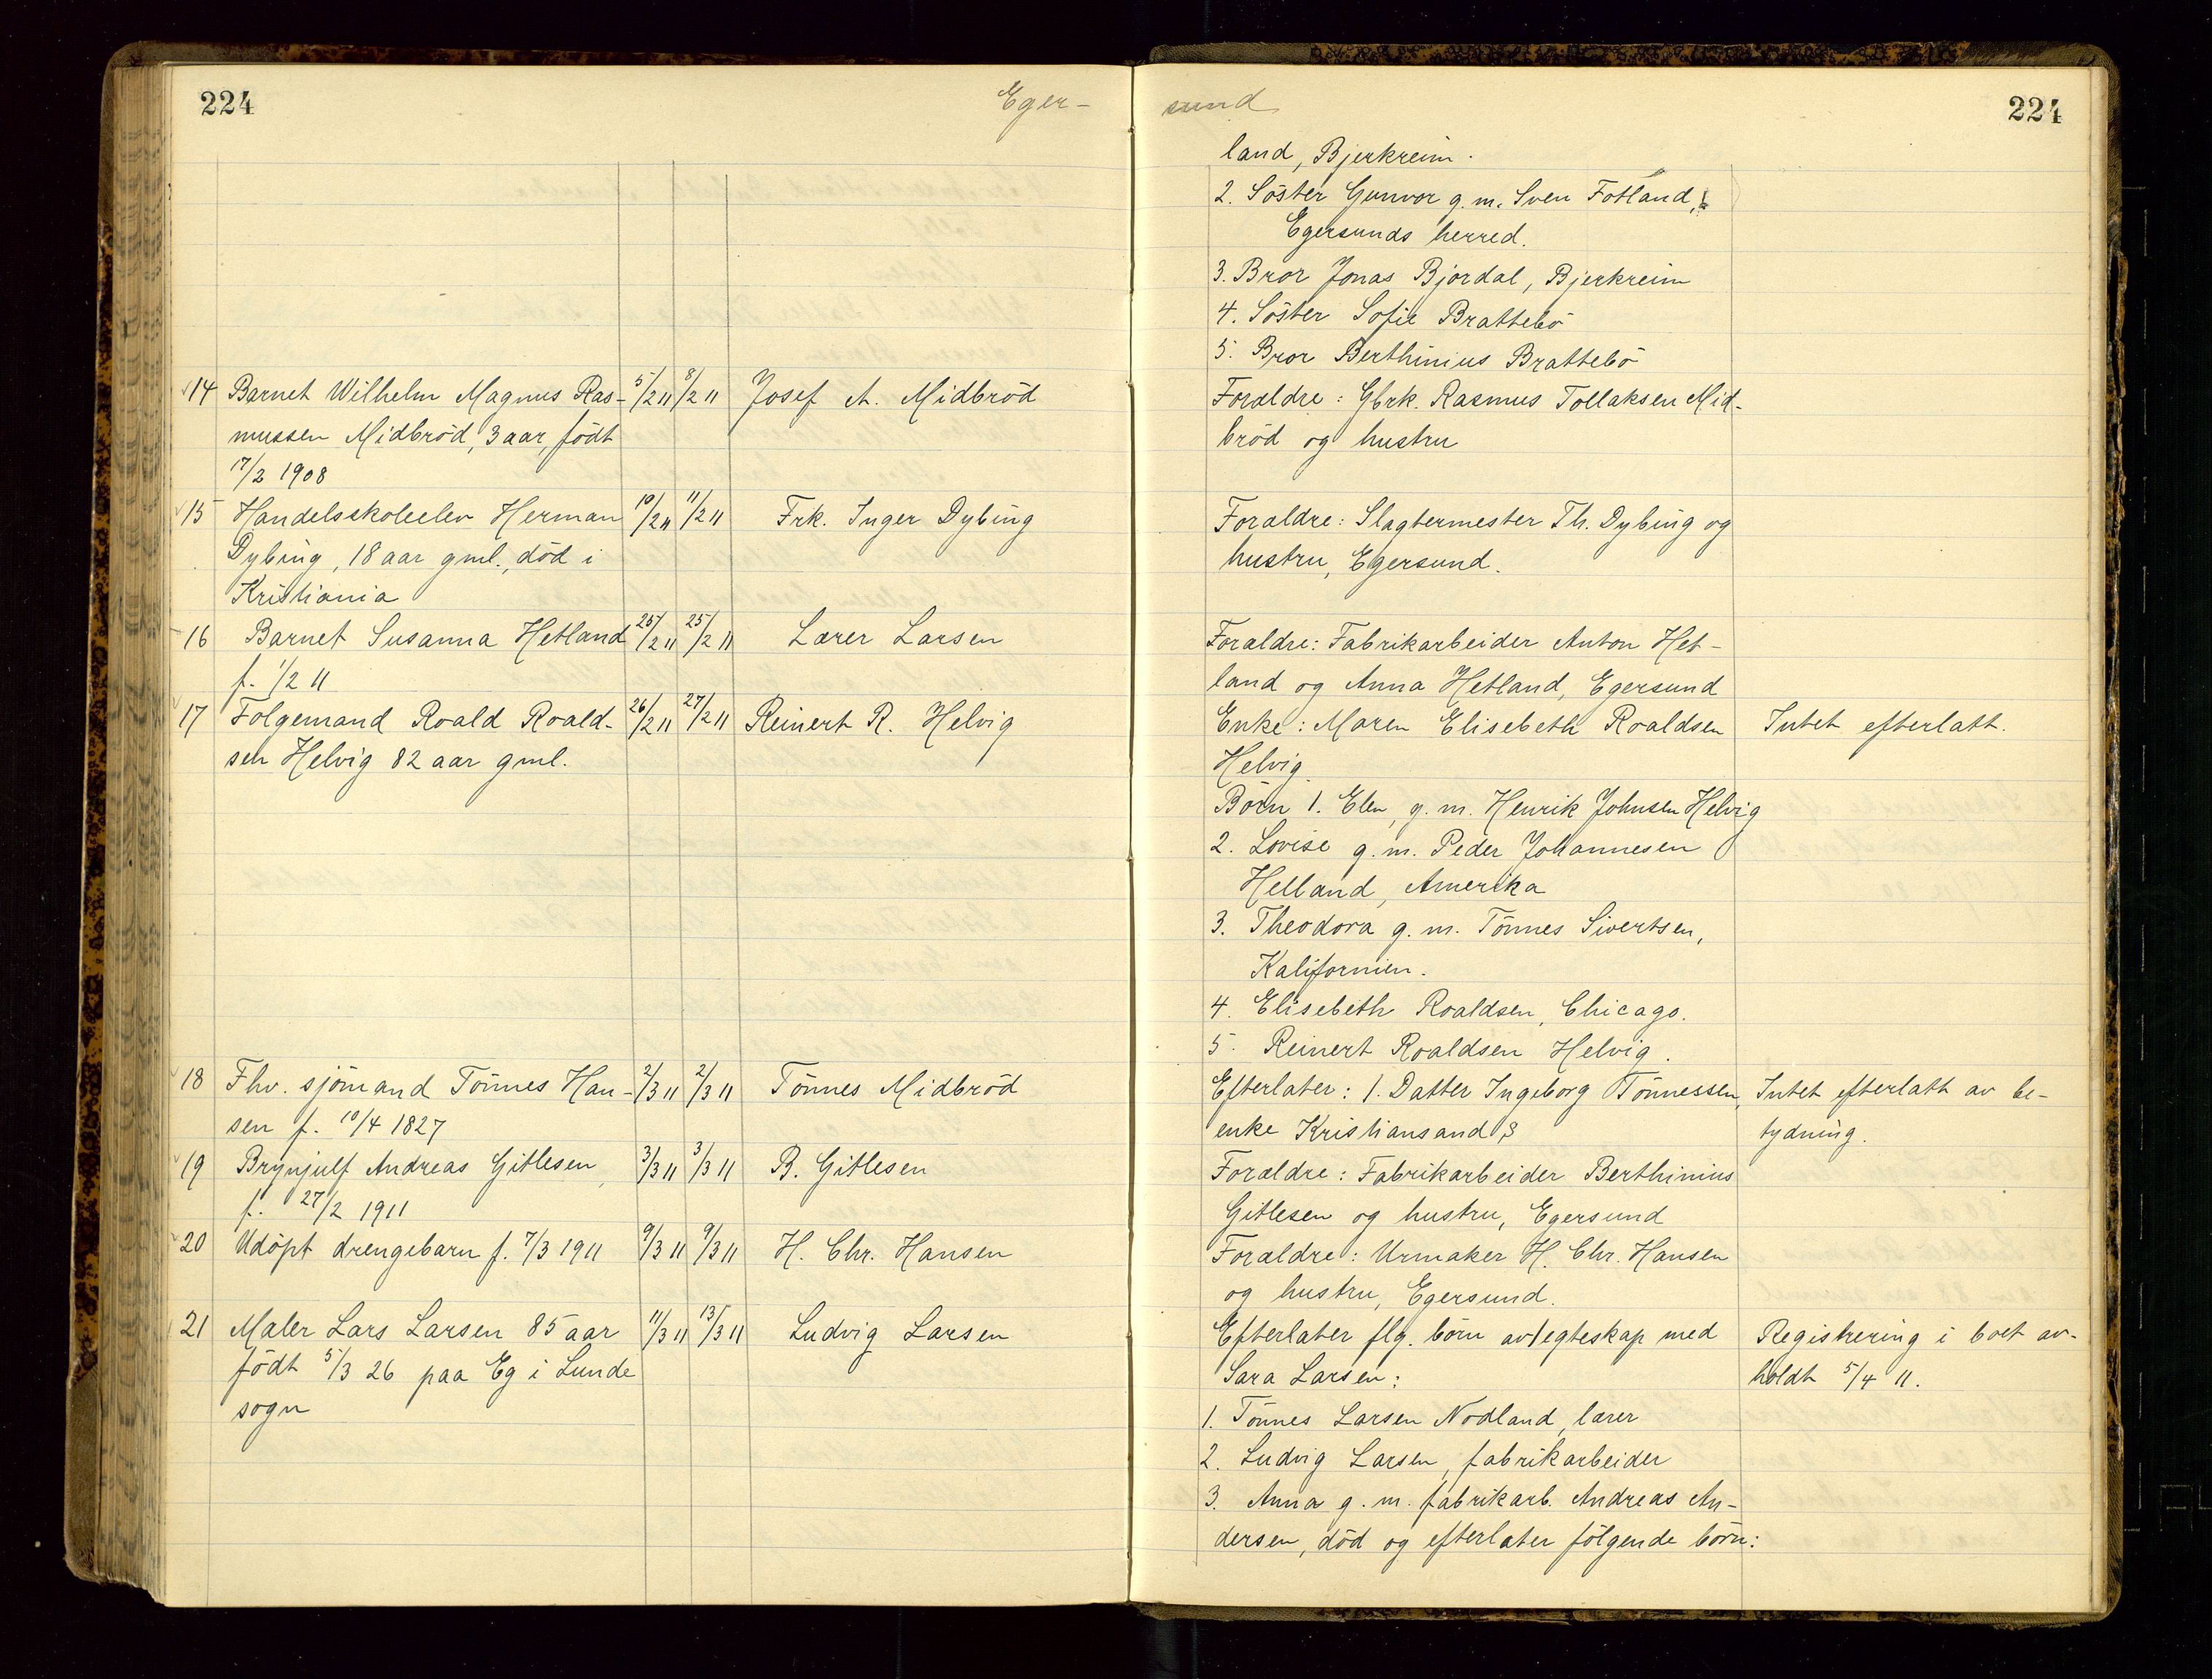 224
Eger-
14 Barnet Wilhelm Magnus Ras- 5/2 11 8/2 11 Josef A. Midbröd
mussen Midbröd, 3 aar, födt
17/2 1908
15 Handelsskoleelev Herman 10/2 11 11/2 11 Frk. Inger Dybing
Dybing, 18 aar gml., död i
Kristiania
16 Barnet Susanna Hetland 25/2 11 25/2 11 Lærer Larsen
f. 1/2 11
17 Folgemand Roald Roald- 26/2 11 27/2 11 Reinert R. Helvig
sen Helvig 82 aar gml.
18 Fhv. sjömand Tönnes Han- 2/3 11 2/3 11 Tönnes Midbröd
sen f. 10/4 1827
19 Brynjulf Andreas Gitlesen, 3/3 11 3/3 11 B. Gitlesen
f. 27/2 1911
20 Udöpt drengebarn f. 7/3 1911 9/3 11 9/3 11 H. Chr. Hansen
21 Maler Lars Larsen 85 aar 11/3 11 13/3 11 Ludvig Larsen
födt 5/3 26 paa Eg i Lunde
sogn
sund
224
land, Bjerkreim.
2. Söster Gunvor g.m. Sven Fotland,
Egersunds herred.
3. Bror Jonas Bjordal, Bjerkreim
4. Söster Sofie Brattebö
5. Bror Berthinius Brattebö
Forældre: Gbrk. Rasmus Tollaksen Mid-
bröd og hustru
Forældre: Slagtermester Th. Dybing og
hustru, Egersund.
Forældre: Fabrikarbeider Anton Het-
land og Anna Hetland, Egersund
Enke: Maren Elisebeth Roaldsen Intet efterlatt.
Helvig.
Börn 1. Elen, g.m. Henrik Johnsen Helvig
2. Lovise g.m. Peder Johannesen
Helland, Amerika
3. Theodora g.m. Tönnes Sivertsen,
Kalifornien.
4. Elisebeth Roaldsen, Chicago.
5. Reinert Roaldsen Helvig.
Efterlater: 1. Datter Ingeborg Tönnessen, Intet efterlatt av be-
enke Kristiansand S tydning.
Forældre: Fabrikarbeider Berthinius
Gitlesen og hustru, Egersund
Forældre: Urmaker H. Chr. Hansen
og hustru, Egersund.
Efterlater flg. börn av egteskap med Registrering i boet av-
Sara Larsen: holdt 5/4 11.
1. Tönnes Larsen Nodland, lærer
2. Ludvig Larsen, fabrikarbeider
3. Anna g.m. fabrikarb. Andreas An-
dersen, död og efterlater fölgende börn: